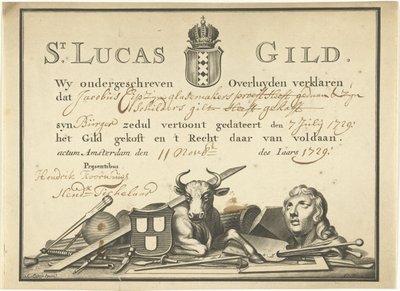 St. LUCAS GILD.
Wy ondergeschreven Overluyden verklaren
dat Jacobus glasemakers proef heeft gedaan &
Schilders gilt heeft gekoft
syn Burger zedul vertoont gedateert den 7 July 1729.
het Gild gekoft en 't Recht daar van voldaan.
actum Amsterdam den 11 Novemb des Iaars 1729.
Presentibus
Hendrik
Hendk.